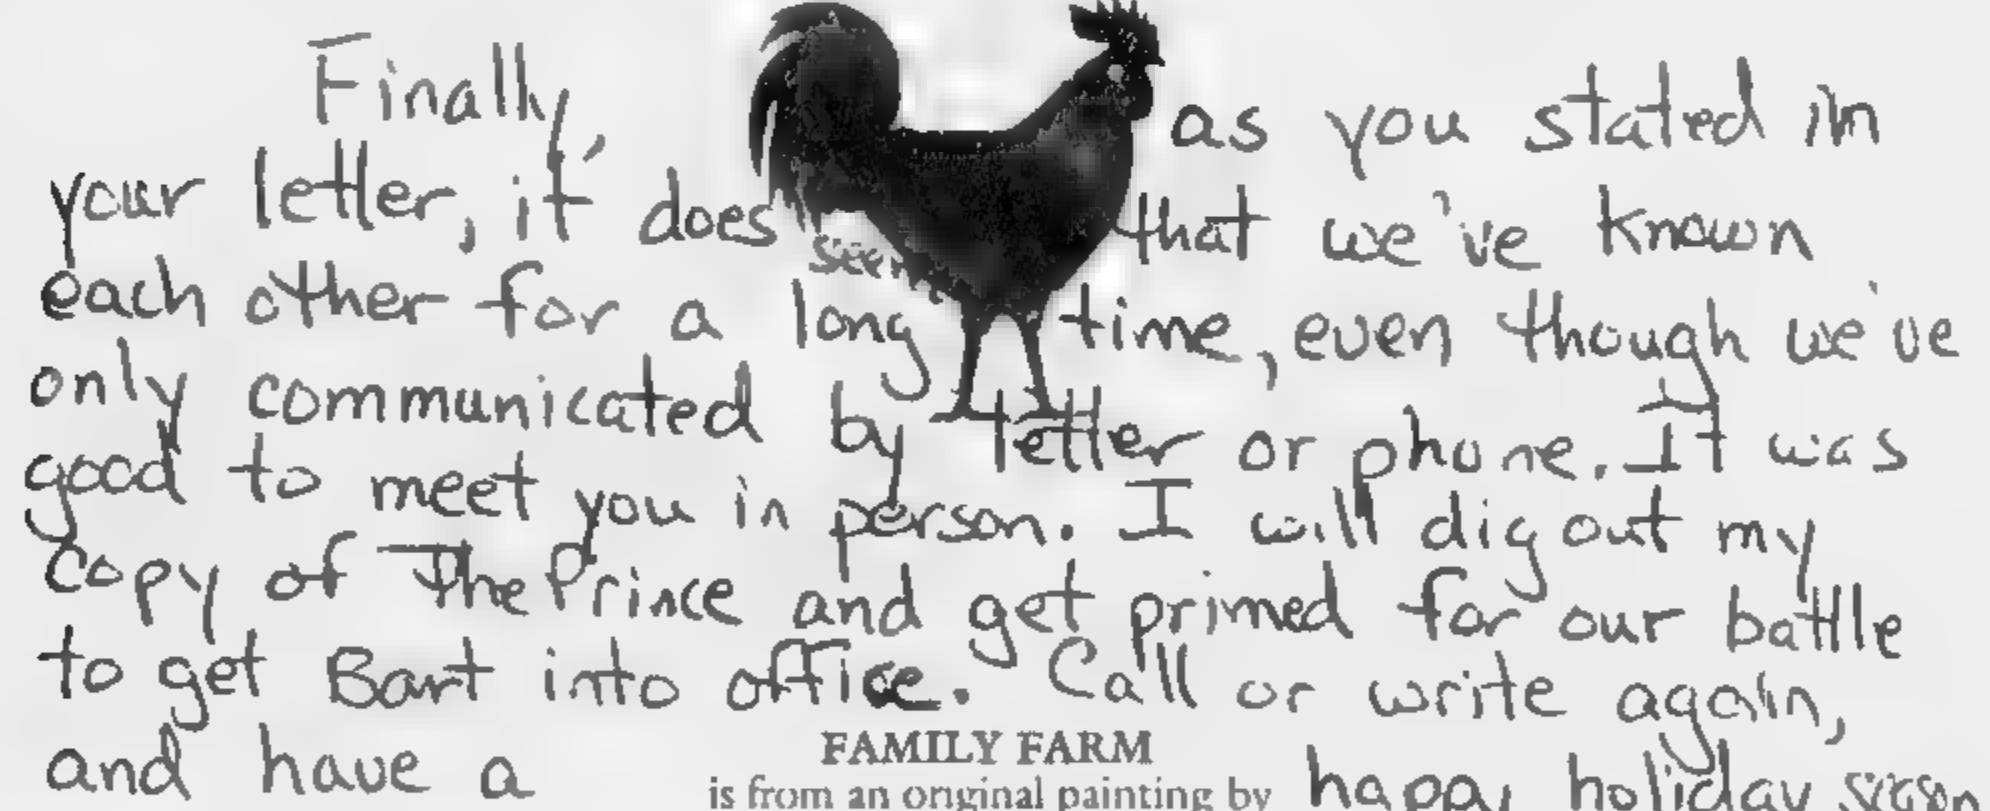 Finally, as you stated in
your letter, it does seem that we've known
each other for a long time, even though we've
only communicated by letter or phone. It was
good to meet you in person. I will dig out my
copy of The Prince and get primed for our battle
to get Bart into office. Call or write again,
and have a happy holiday season
FAMILY FARM
is from an original painting by